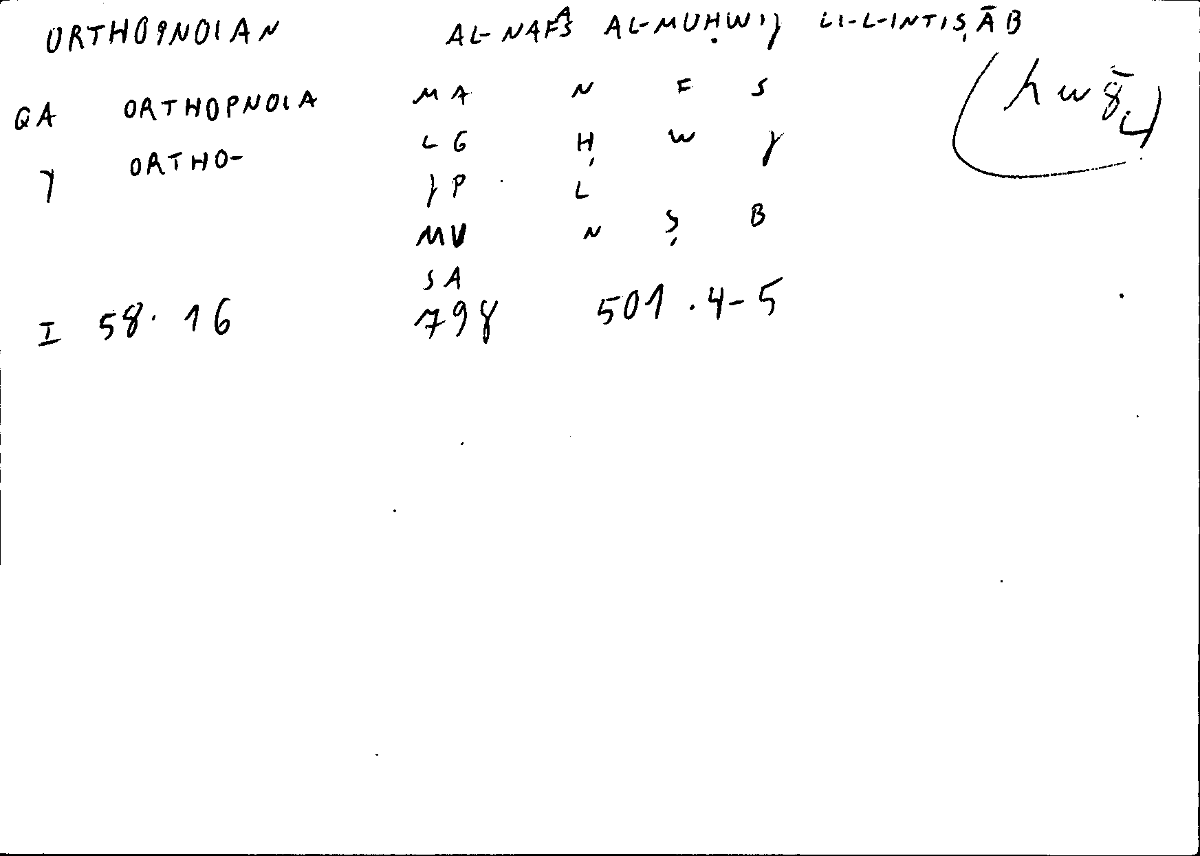 ORTHOPNOIAN AL-NAFAS AL-MUḤWIJ LI-L-INTIṢĀB
QA ORTHOPNOIA M A N F S
J ORTHO- L G Ḥ W J
J P L
M U N Ṣ B
S A
I 58.16 798 501.4-5